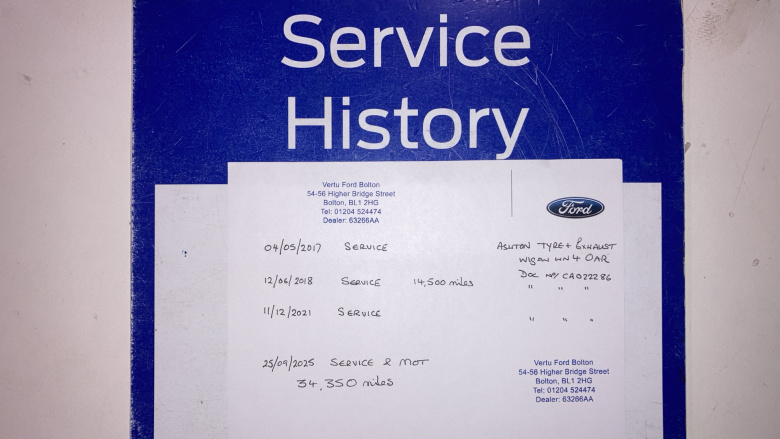 Service
History
Vertu Ford Bolton
54-56 Higher Bridge Street
Bolton, BL1 2HG
Tel: 01204 524474
Dealer: 63266AA
Ford
04/05/2017 SERVICE ASHTON TYRE + EXHAUST
WIGAN WN4 0AR
12/06/2018 SERVICE 14,500 miles DOC NO/ CA022286
" " "
11/12/2021 SERVICE " " "
25/09/2025 SERVICE & MOT
34,350 miles
Vertu Ford Bolton
54-56 Higher Bridge Street
Bolton, BL1 2HG
Tel: 01204 524474
Dealer: 63266AA